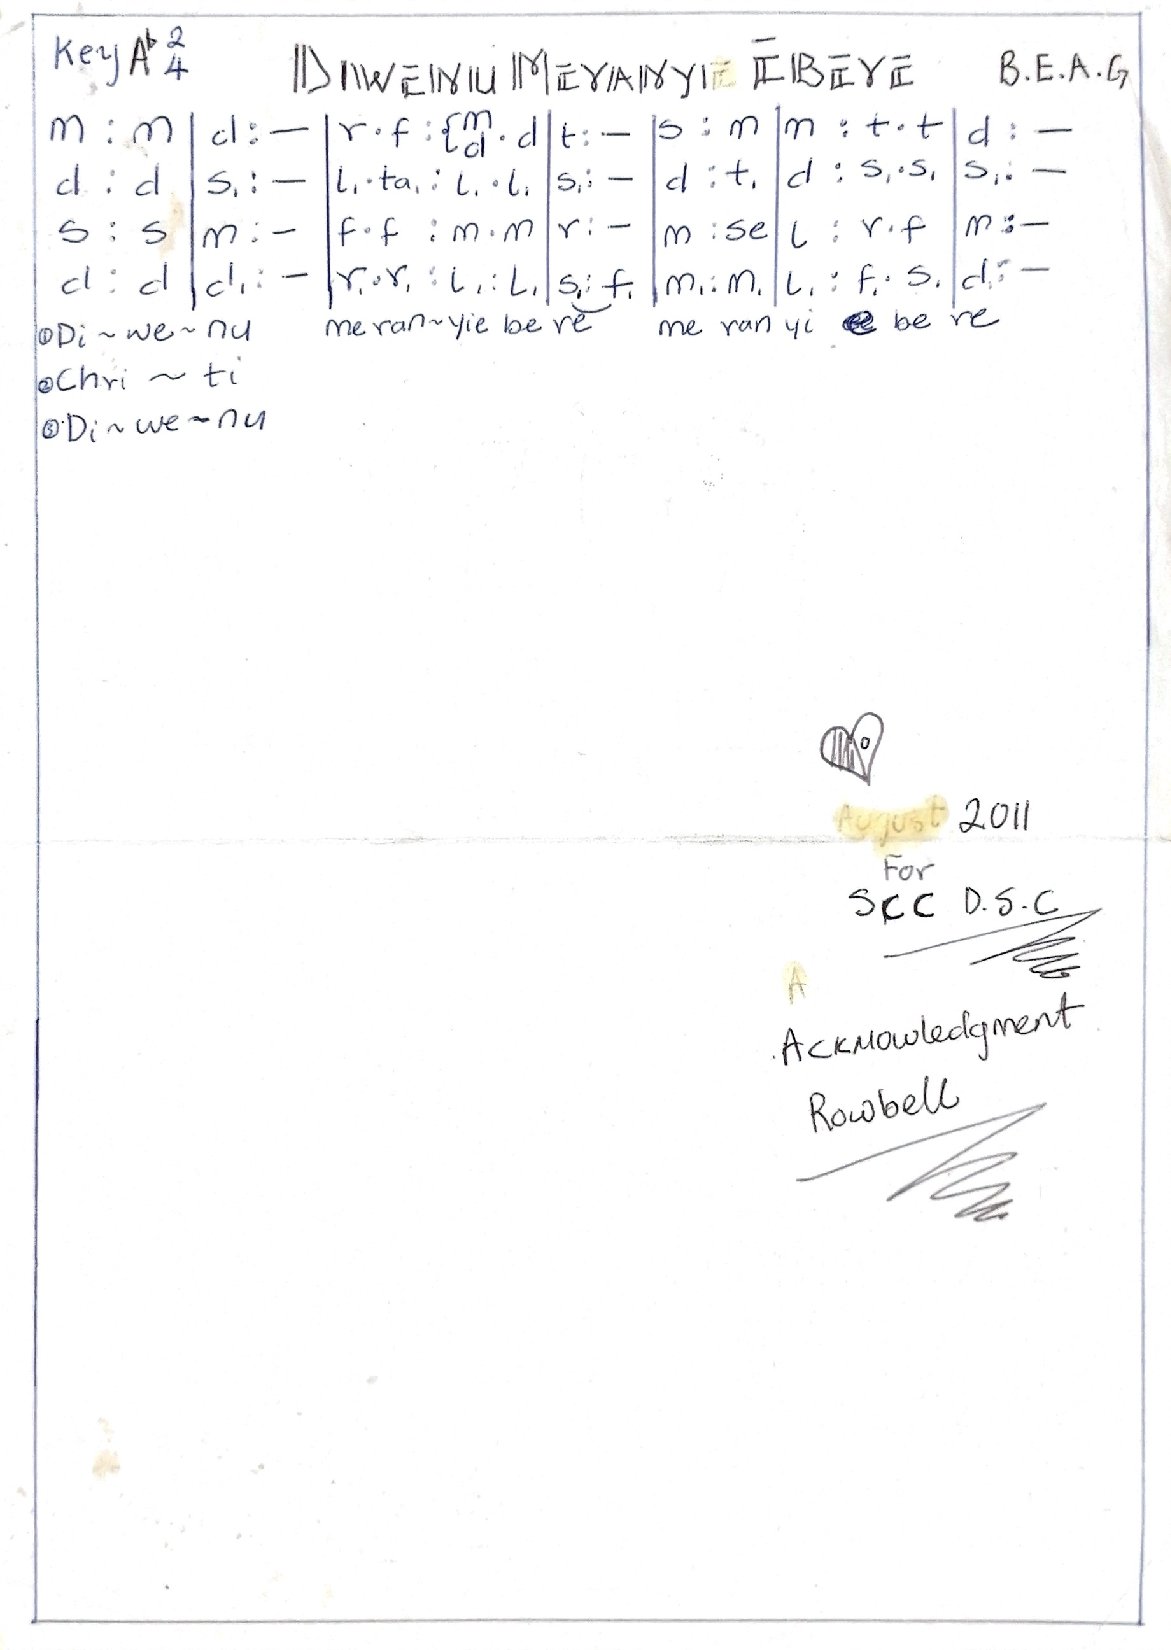 Key A♭ 2/4 DIWENU MERANYIE EBERE B.E.A.G
m : m | d : — | r . f : {m/d . d | t : — | s : m | m : t . t | d : —
d : d | s₁ : — | l₁ . ta₁ : l₁ . l₁ | s₁ : — | d : t₁ | d : s₁ . s₁ | s₁ : —
s : s | m : — | f . f : m . m | r : — | m : se | l : r . f | m : —
d : d | d₁ : — | r₁ . r₁ : l₁ : l₁ | s₁ : f₁ | m₁ : m₁ | l₁ : f₁ . s₁ | d₁ : —
① Di ~ we ~ nu me ran ~ yie be re me ran yi e be re
② Chri ~ ti
③ Di ~ we ~ nu
August 2011
For
SCC D.S.C
A
Acknowledgment
Rowbell